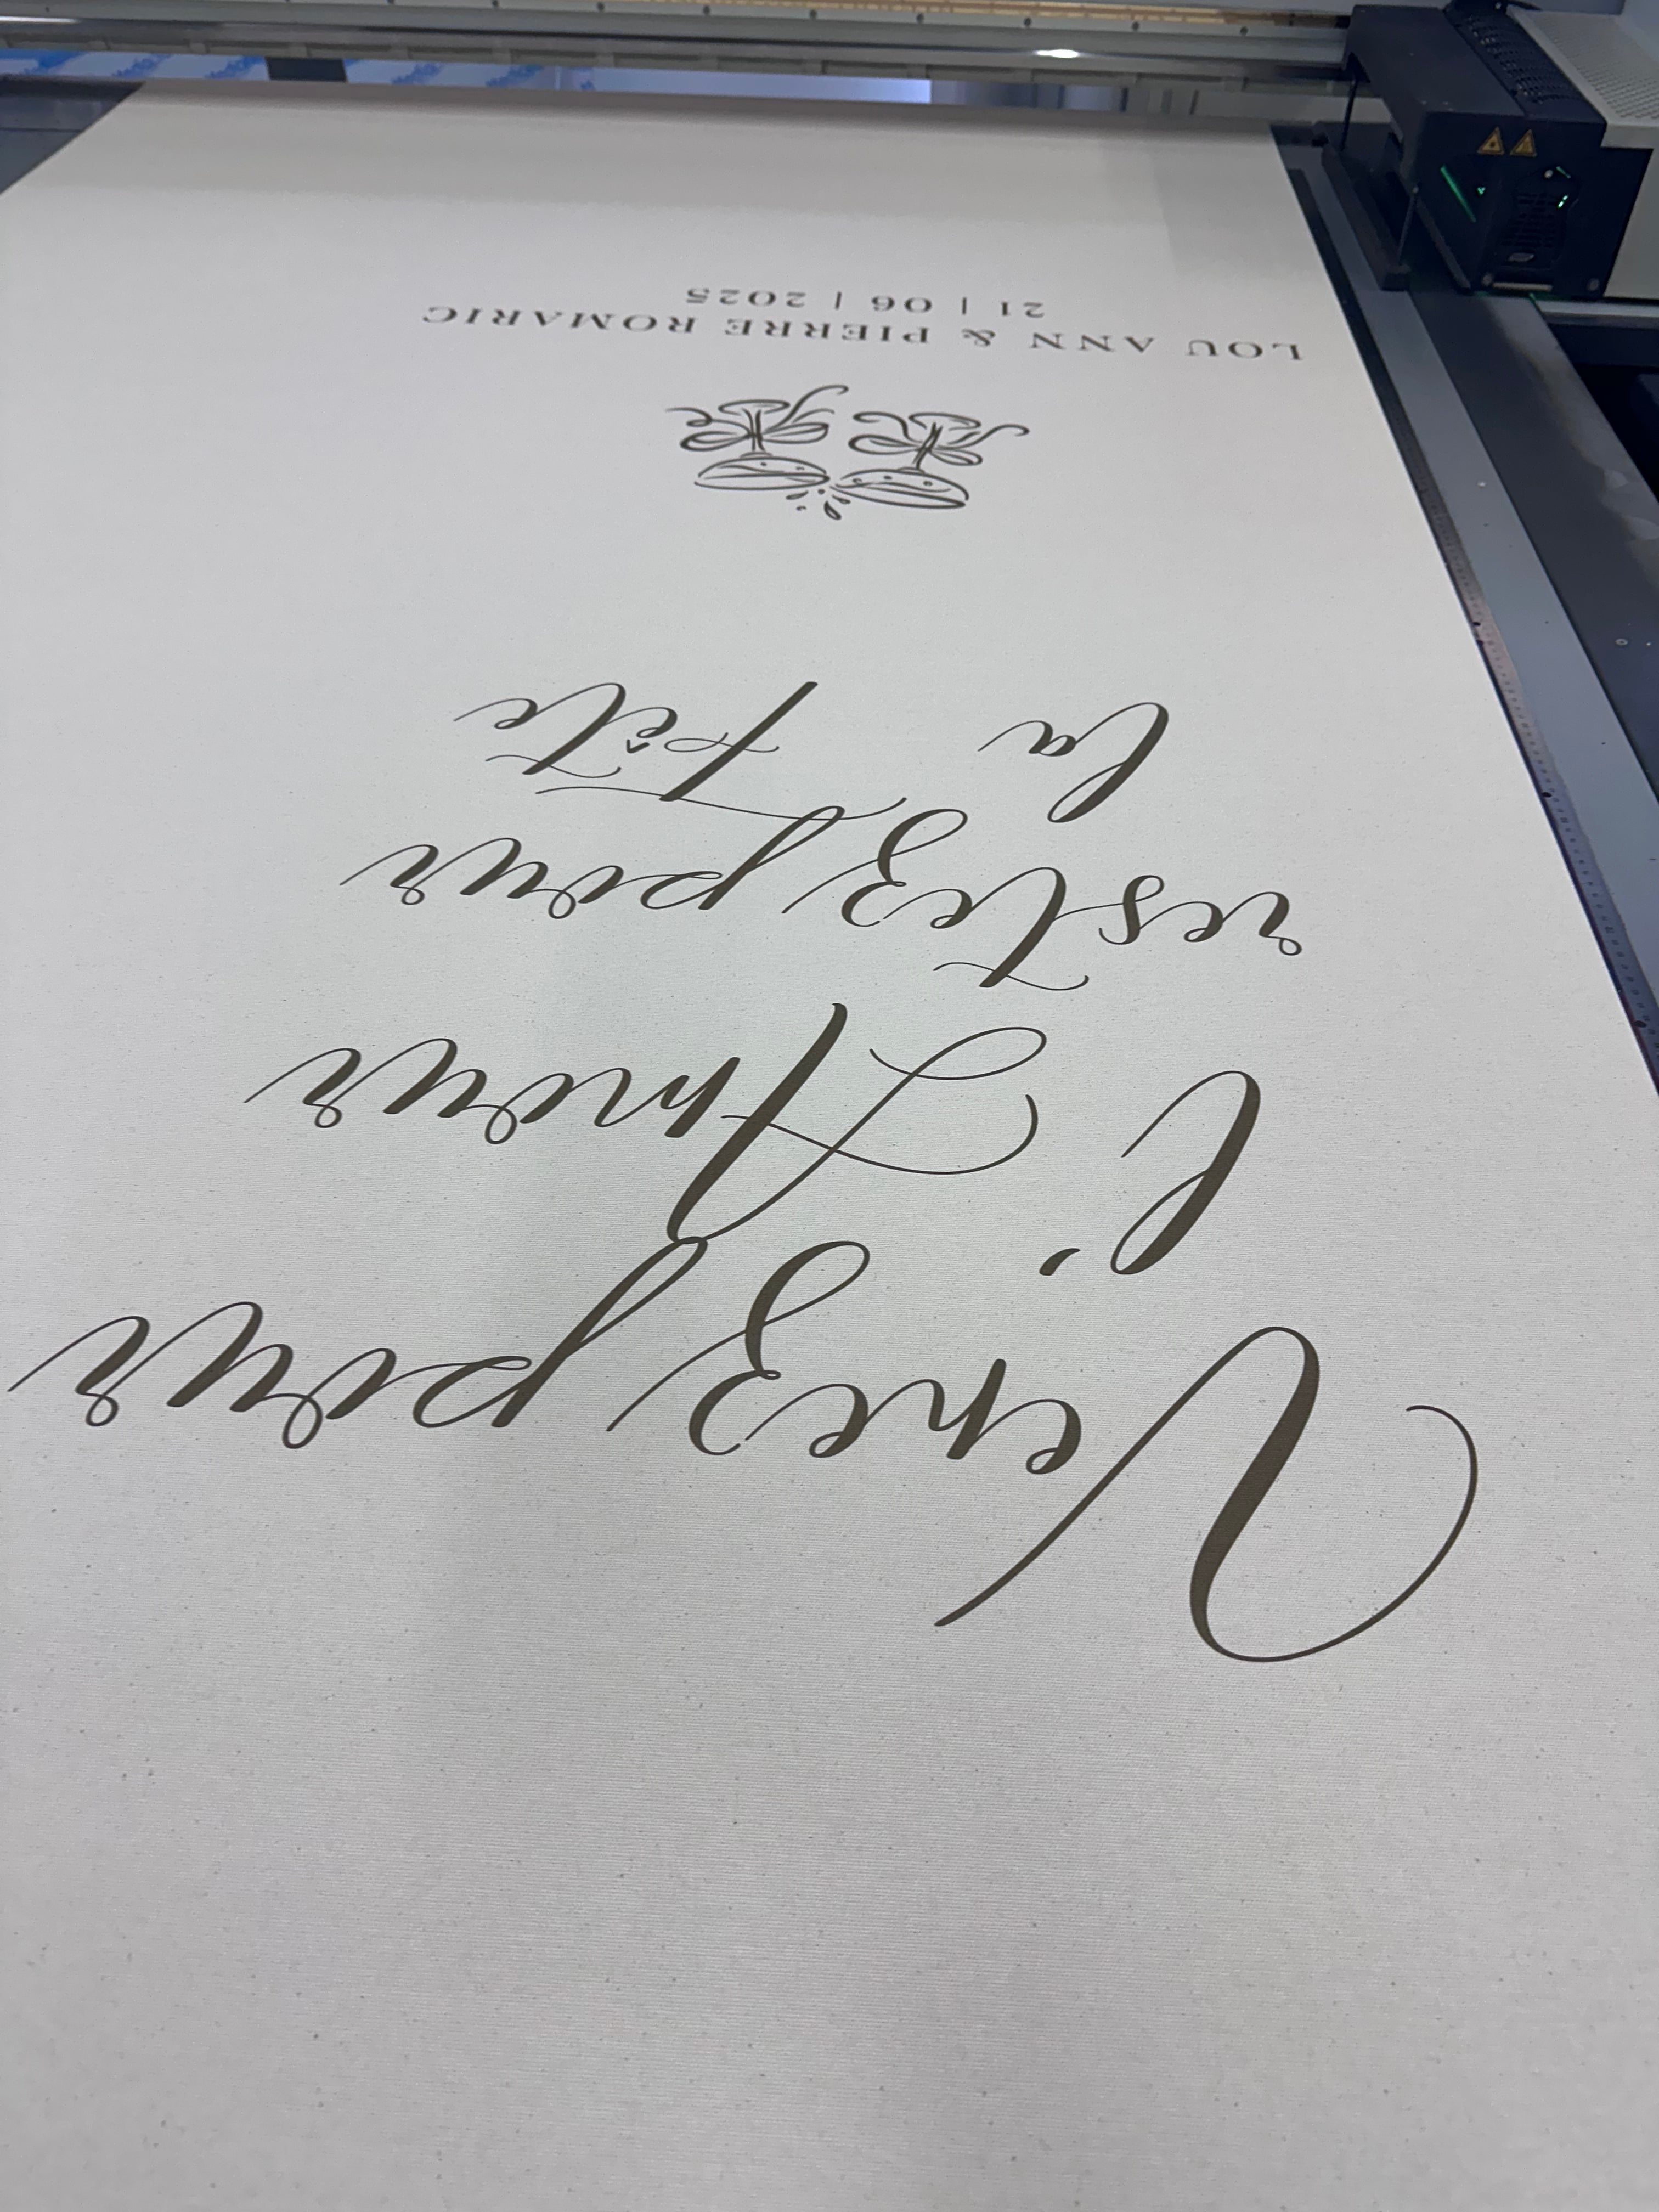 Venez pour
l'Amour
restez pour
la Fête
LOU ANN & PIERRE ROMARIC
21 | 06 | 2025